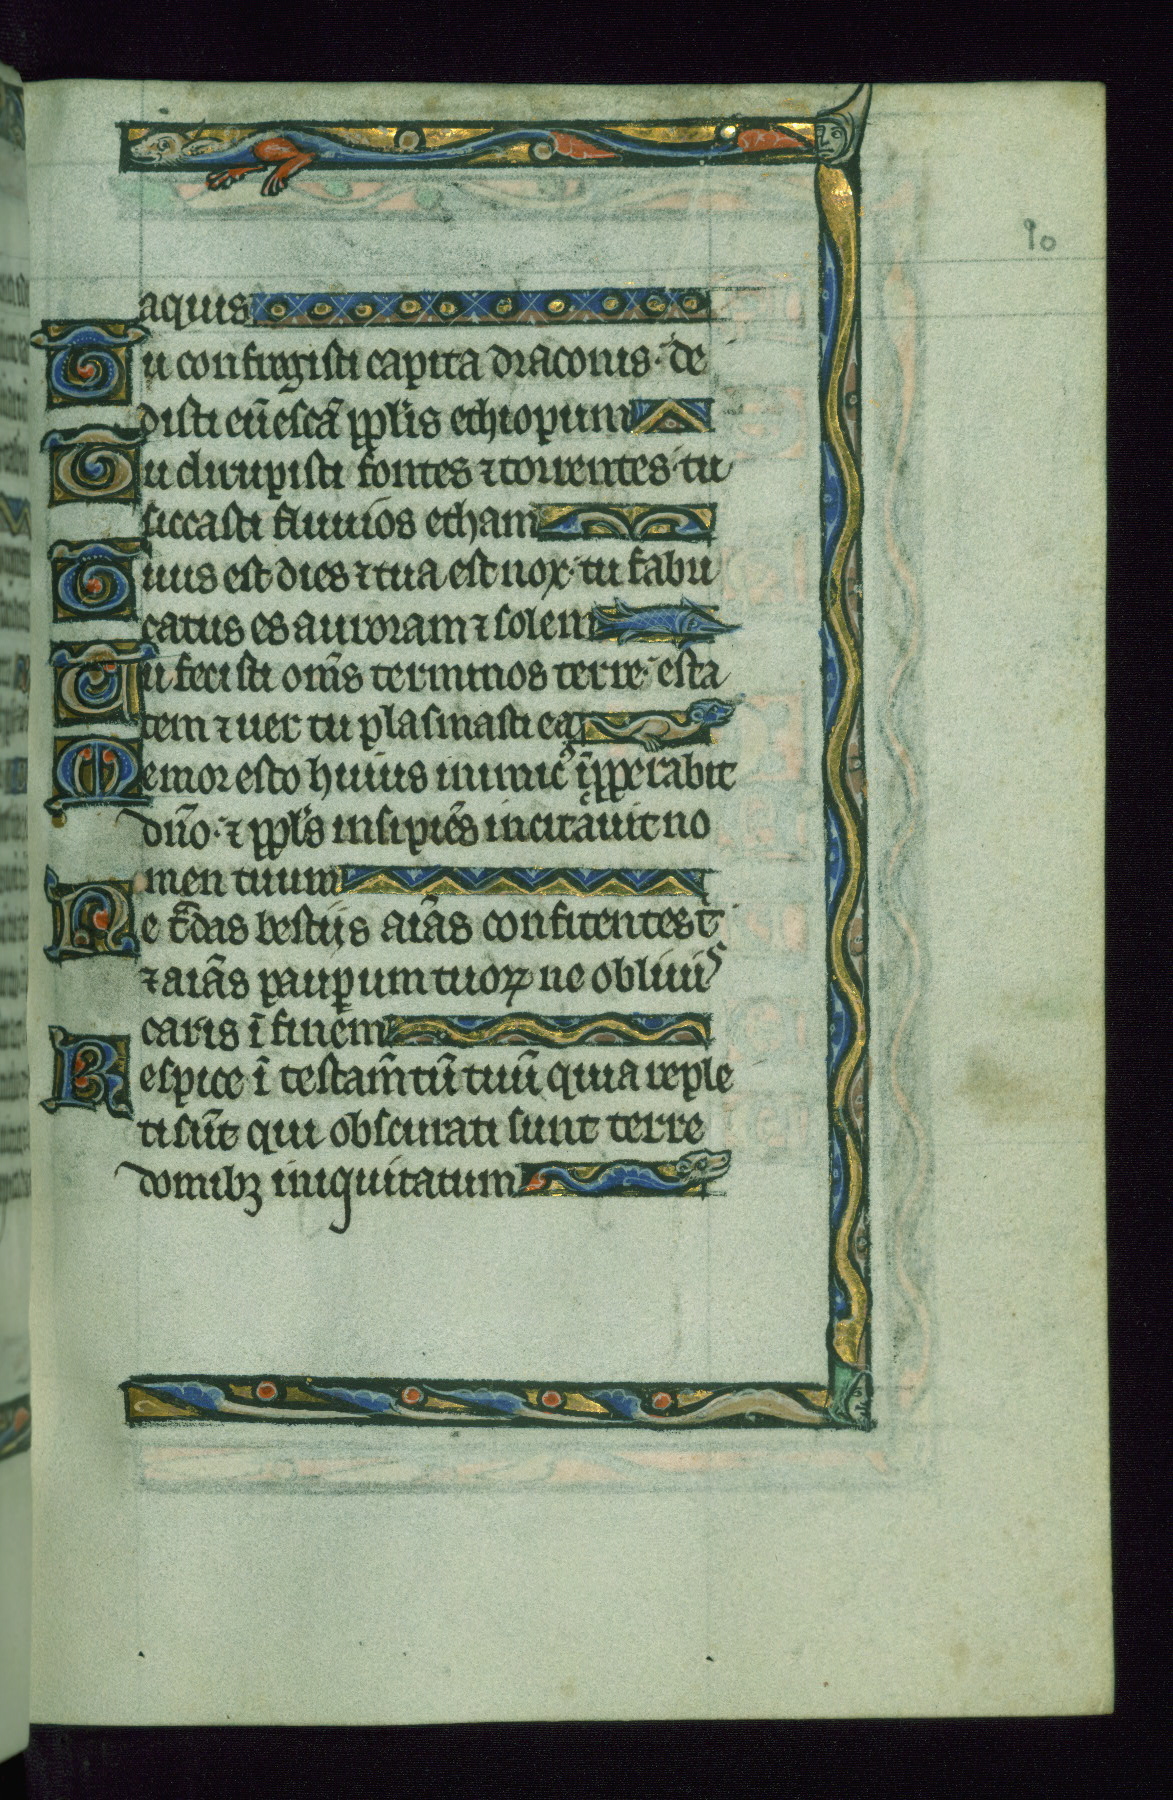 90
aquis
Tu confregisti capita draconis· de
disti eū escā pplis ethiopum
Tu dirupisti fontes ⁊ torrentes· tu
siccasti fluuios etham
Tuus est dies ⁊ tua est nox· tu fabri
catus es auroram ⁊ solem
Tu fecisti om̄s terminos terre· esta
tem ⁊ uer tu plasmasti ea
Memor esto huius inimicꝰ īpꝑerabit
dn̄o· ⁊ ppl̄s insipiēs incitauit no
men tuum
Ne t̄das bestijs aīas confitentes t̄
⁊ aīas pauꝑum tuoꝝ ne obliuis
caris ī finem
Respice ī testam̄tū tuū quia reple
ti sūt qui obscurati sunt terre
domibꝫ iniquitatum